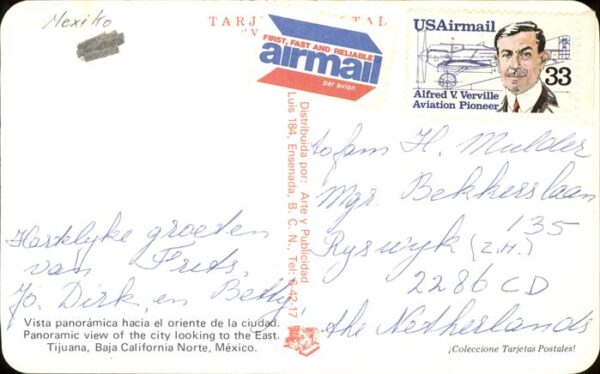 Mexiko
TARJ TAL
"V
FIRST, FAST AND RELIABLE
airmail
par avion
USAirmail
33
Alfred V. Verville
Aviation Pioneer
Distribuida por: Arte y Publicidad
Luis 184, Ensenada, B. C. N., Tel: 6-42-17
to fam H. Mulder
Mgr. Bekkerslaan
135
Ryswyk (Z.H.)
2286 CD
the Netherlands
Hartelyke groeten
van Frits,
Jo, Dirk, en Betty
Vista panorámica hacia el oriente de la ciudad.
Panoramic view of the city looking to the East.
Tijuana, Baja California Norte, México.
¡Coleccione Tarjetas Postales!